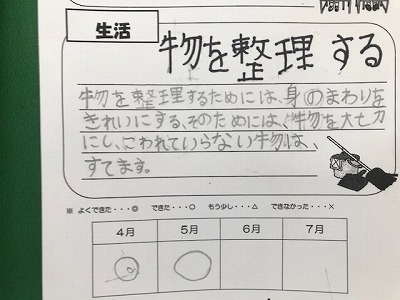 生活
物を整理する
物を整理するためには、身のまわりを
きれいにする、そのためには、物を大切
にし、こわれていらない物は、
すてます。
※ よくできた・・・◎ できた・・・○ もう少し・・・△ できなかった・・・×
4月 5月 6月 7月
◎ ○